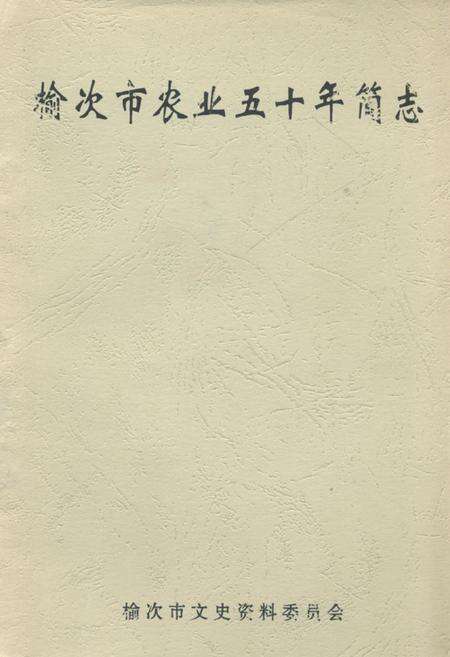 榆次市农业五十年简志
榆次市文史资料委员会